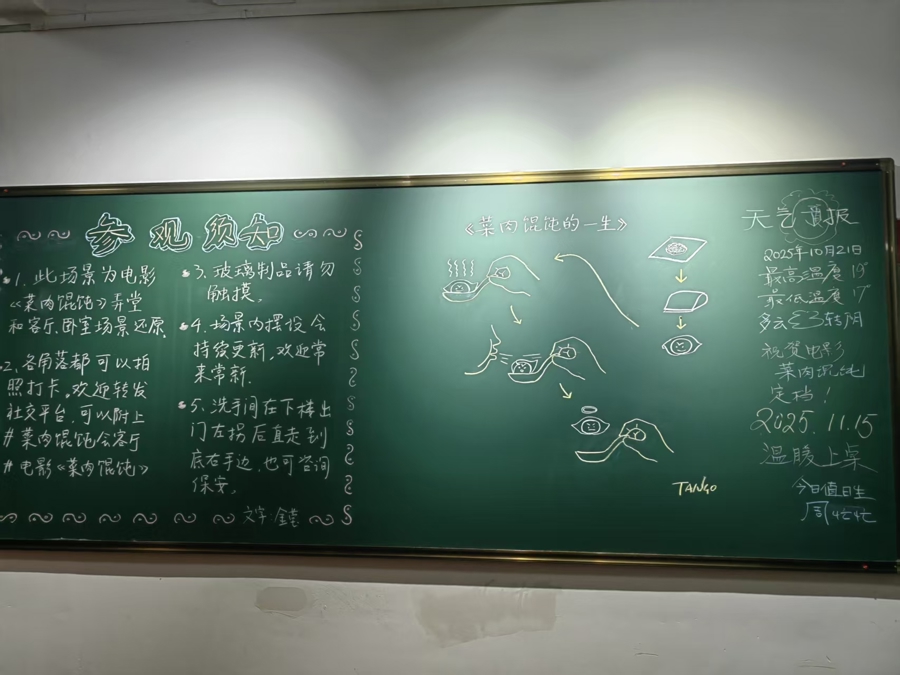 参观须知
1. 此场景为电影
《菜肉馄饨》弄堂
和客厅、卧室场景还原
2. 各角落都可以拍
照打卡。欢迎转发
社交平台，可以附上
#菜肉馄饨会客厅
#电影《菜肉馄饨》
3. 玻璃制品请勿
触摸。
4. 场景内摆设会
持续更新，欢迎常
来常新.
5. 洗手间在下楼出
门左拐后直走到
底右手边，也可咨询
保安。
文字:
《菜肉馄饨的一生》
TANGO
天气预报
2025年10月21日
最高温度 19°
最低温度 17°
多云转阴
祝贺电影
菜肉馄饨
定档！
2025.11.15
温暖上桌
今日值日生
周忙忙